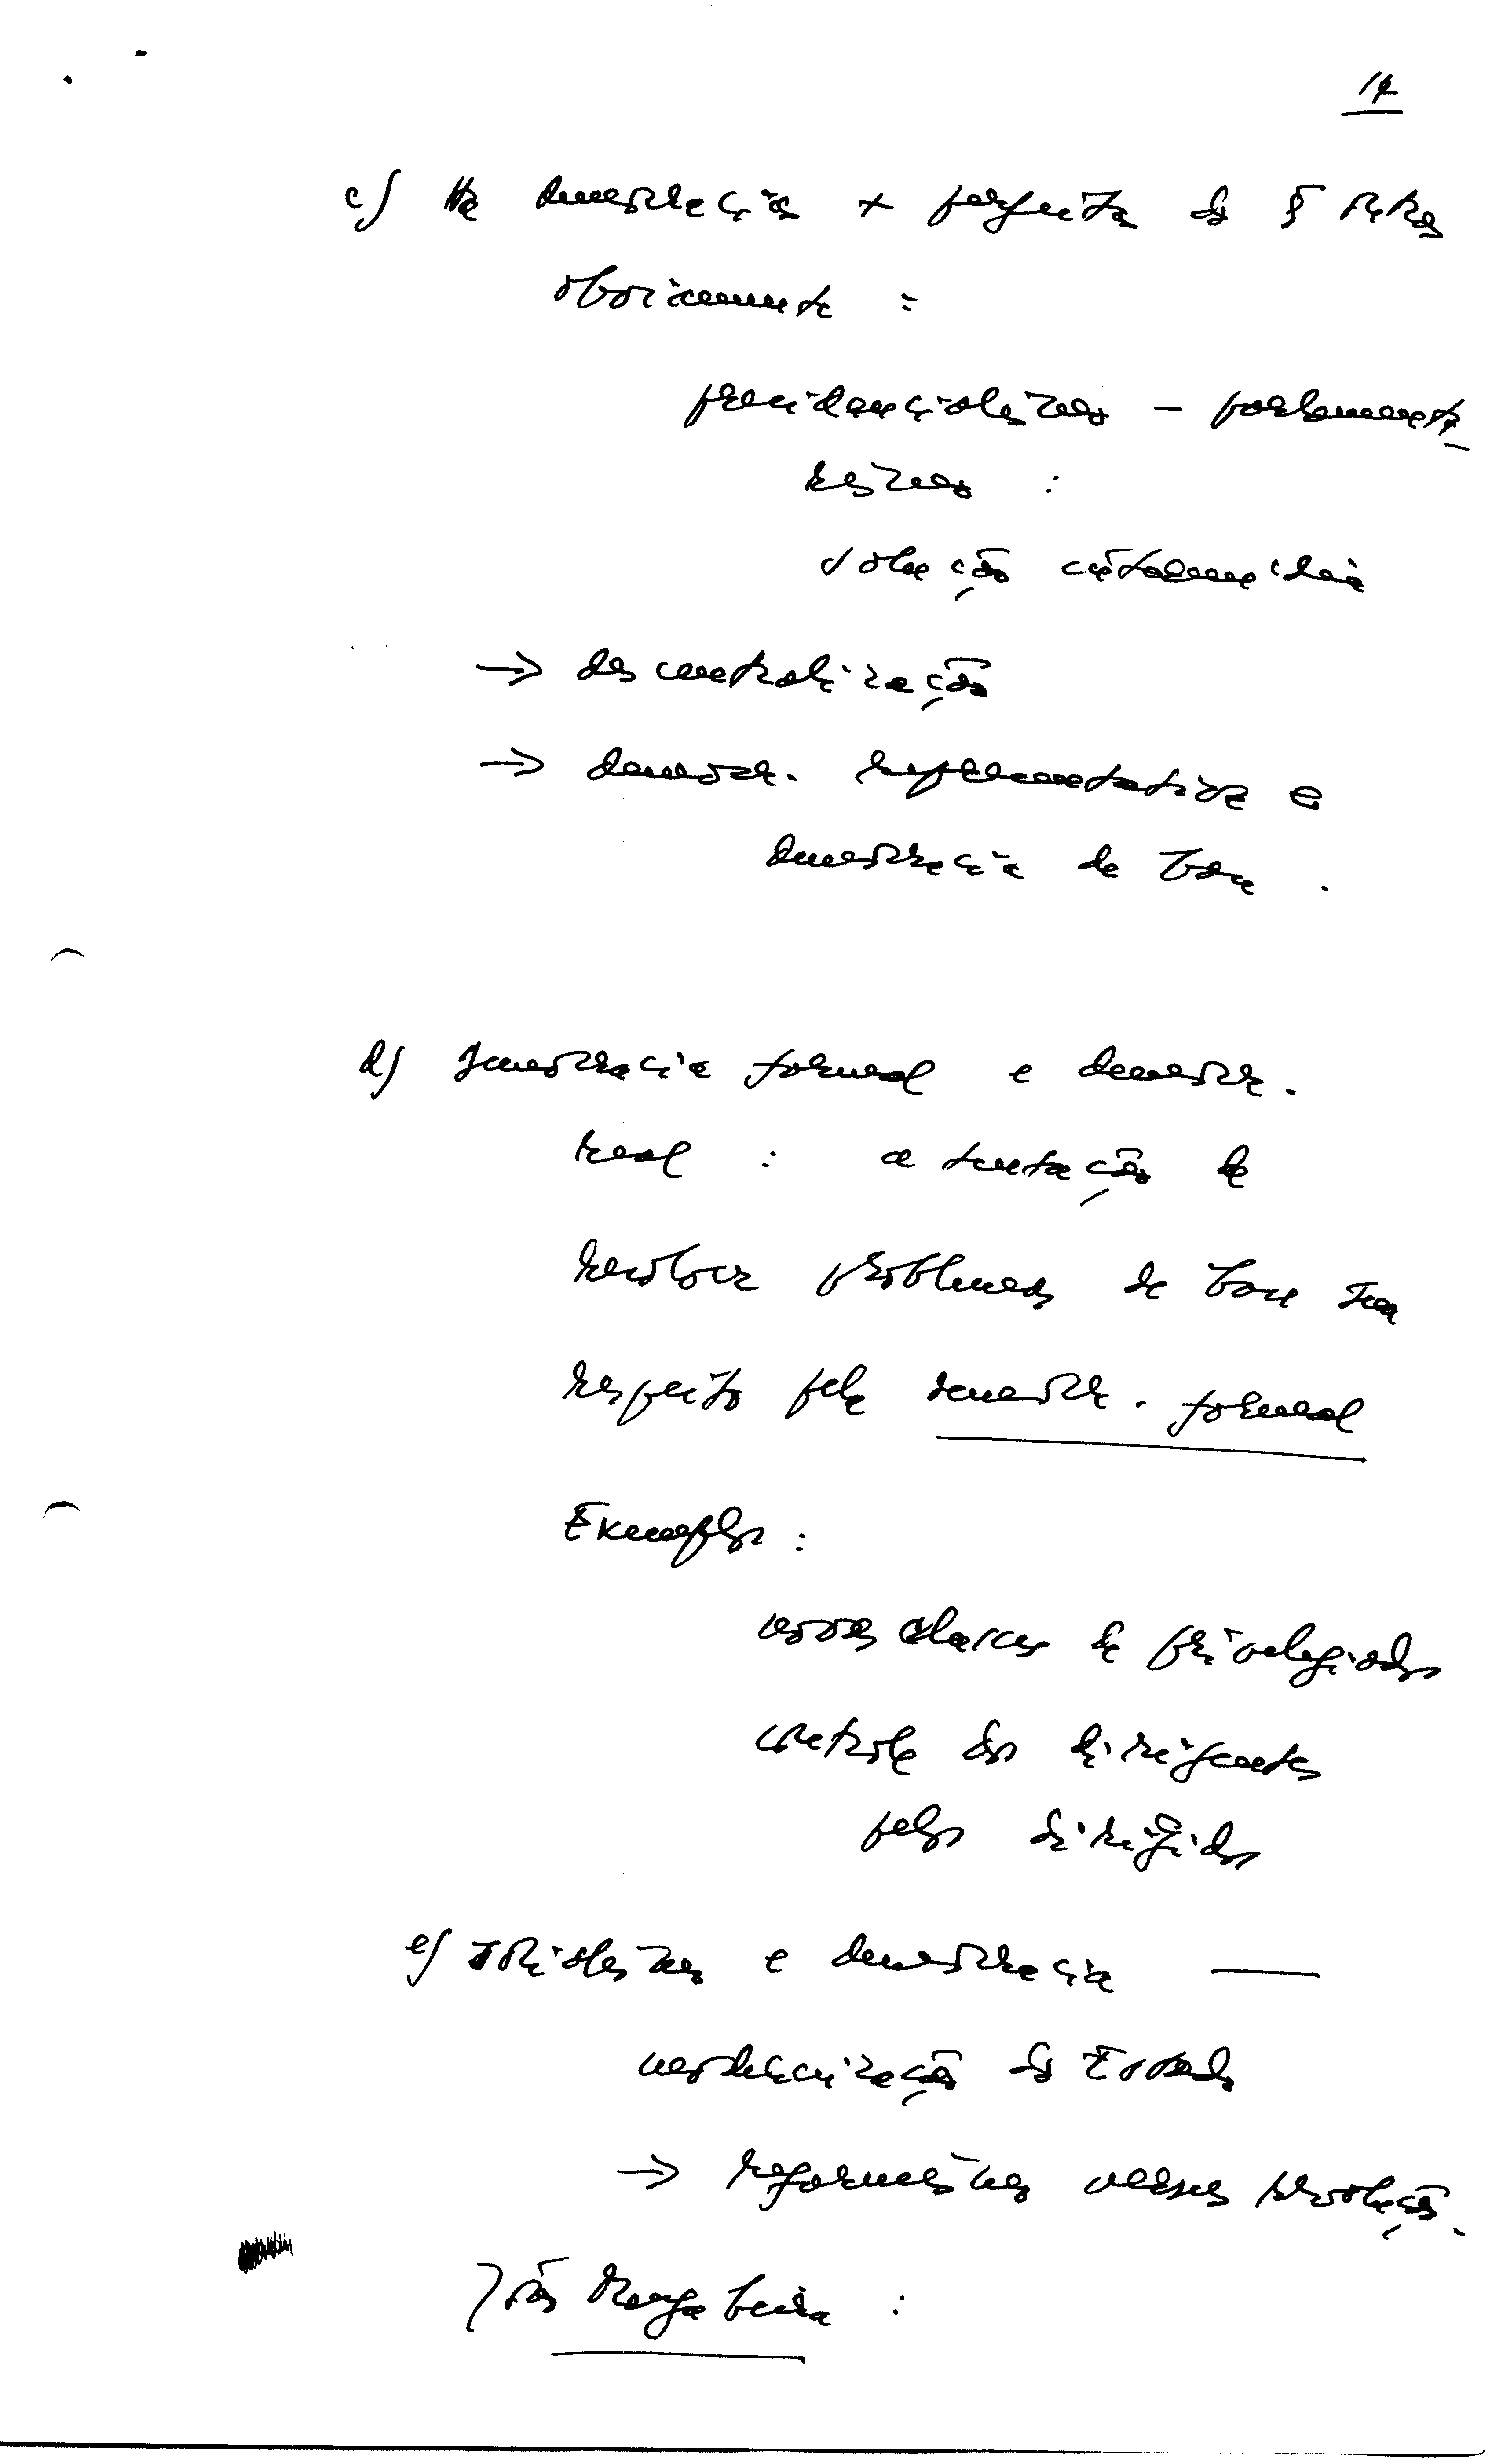 14
c) Há democracia + perfeita do q outra
obviamente :
presidencialismo - parlamenta_
rismo :
solução intermediária
→ descentralização
→ democr. representativa e
democracia de base .
d) Democracia formal e democr.
real : a tentação de
resolver problemas de base sem
respeito pela democr. formal
Exemplos :
novas classes de privilegiados
controle dos dirigentes
pelos dirigidos
e) Socialismo e democracia —
modernização do Estado
→ reformismo versus revolução.
João Mangabeira :